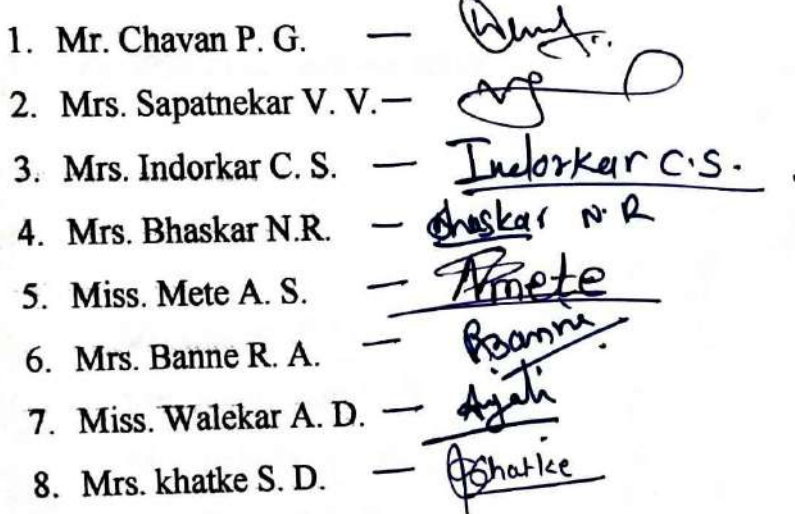 1. Mr. Chavan P. G. —
2. Mrs. Sapatnekar V. V. —
3. Mrs. Indorkar C. S. — Indorkar C.S.
4. Mrs. Bhaskar N.R. — Bhaskar N.R
5. Miss. Mete A. S. — Amete
6. Mrs. Banne R. A. — RBanne
7. Miss. Walekar A. D. —
8. Mrs. khatke S. D. —